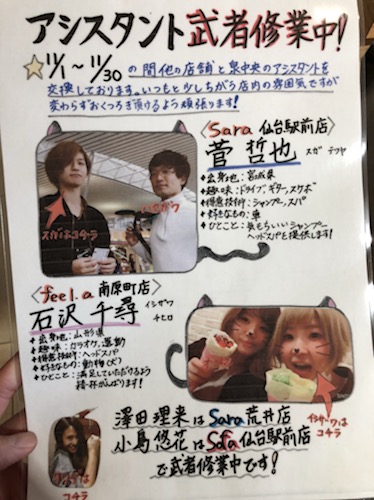 アシスタント武者修業中!
11/1〜11/30の間他の店舗と泉中央のアシスタントを
交換しております。いつもと少しちがう店内の雰囲気ですが
変わらずおくつろぎ頂けるよう頑張ります!
〈Sara 仙台駅前店〉
菅 哲也 スガ テツヤ
・出身地:宮城県
・趣味:ドライブ、ギター、スケボ
・得意技術:シャンプー、スパ
・好きなもの:車
・ひとこと:気もちいいシャンプー
ヘッドスパを提供します!
スガはコチラ
〈feel.a 南原町店〉
石沢 千尋 イシザワ チヒロ
・出身地:山形県
・趣味:カラオケ、運動
・得意技術:ヘッドスパ
・好きなもの:動物(犬)
・ひとこと:満足していただけるよう
精一杯がんばります!
イシザワは
コチラ
澤田理来はSara荒井店
小島悠花はSofa仙台駅前店
で武者修業中です!
コチラ